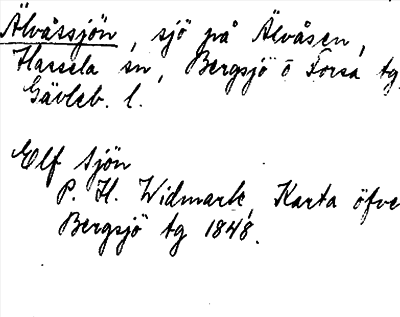 Älvåssjön, sjö på Älvåsen,
Hassela sn, Bergsjö o Forsa tg,
Gävleb. l.
Elf sjön
P. H. Widmark, Karta öfve
Bergsjö tg 1848.